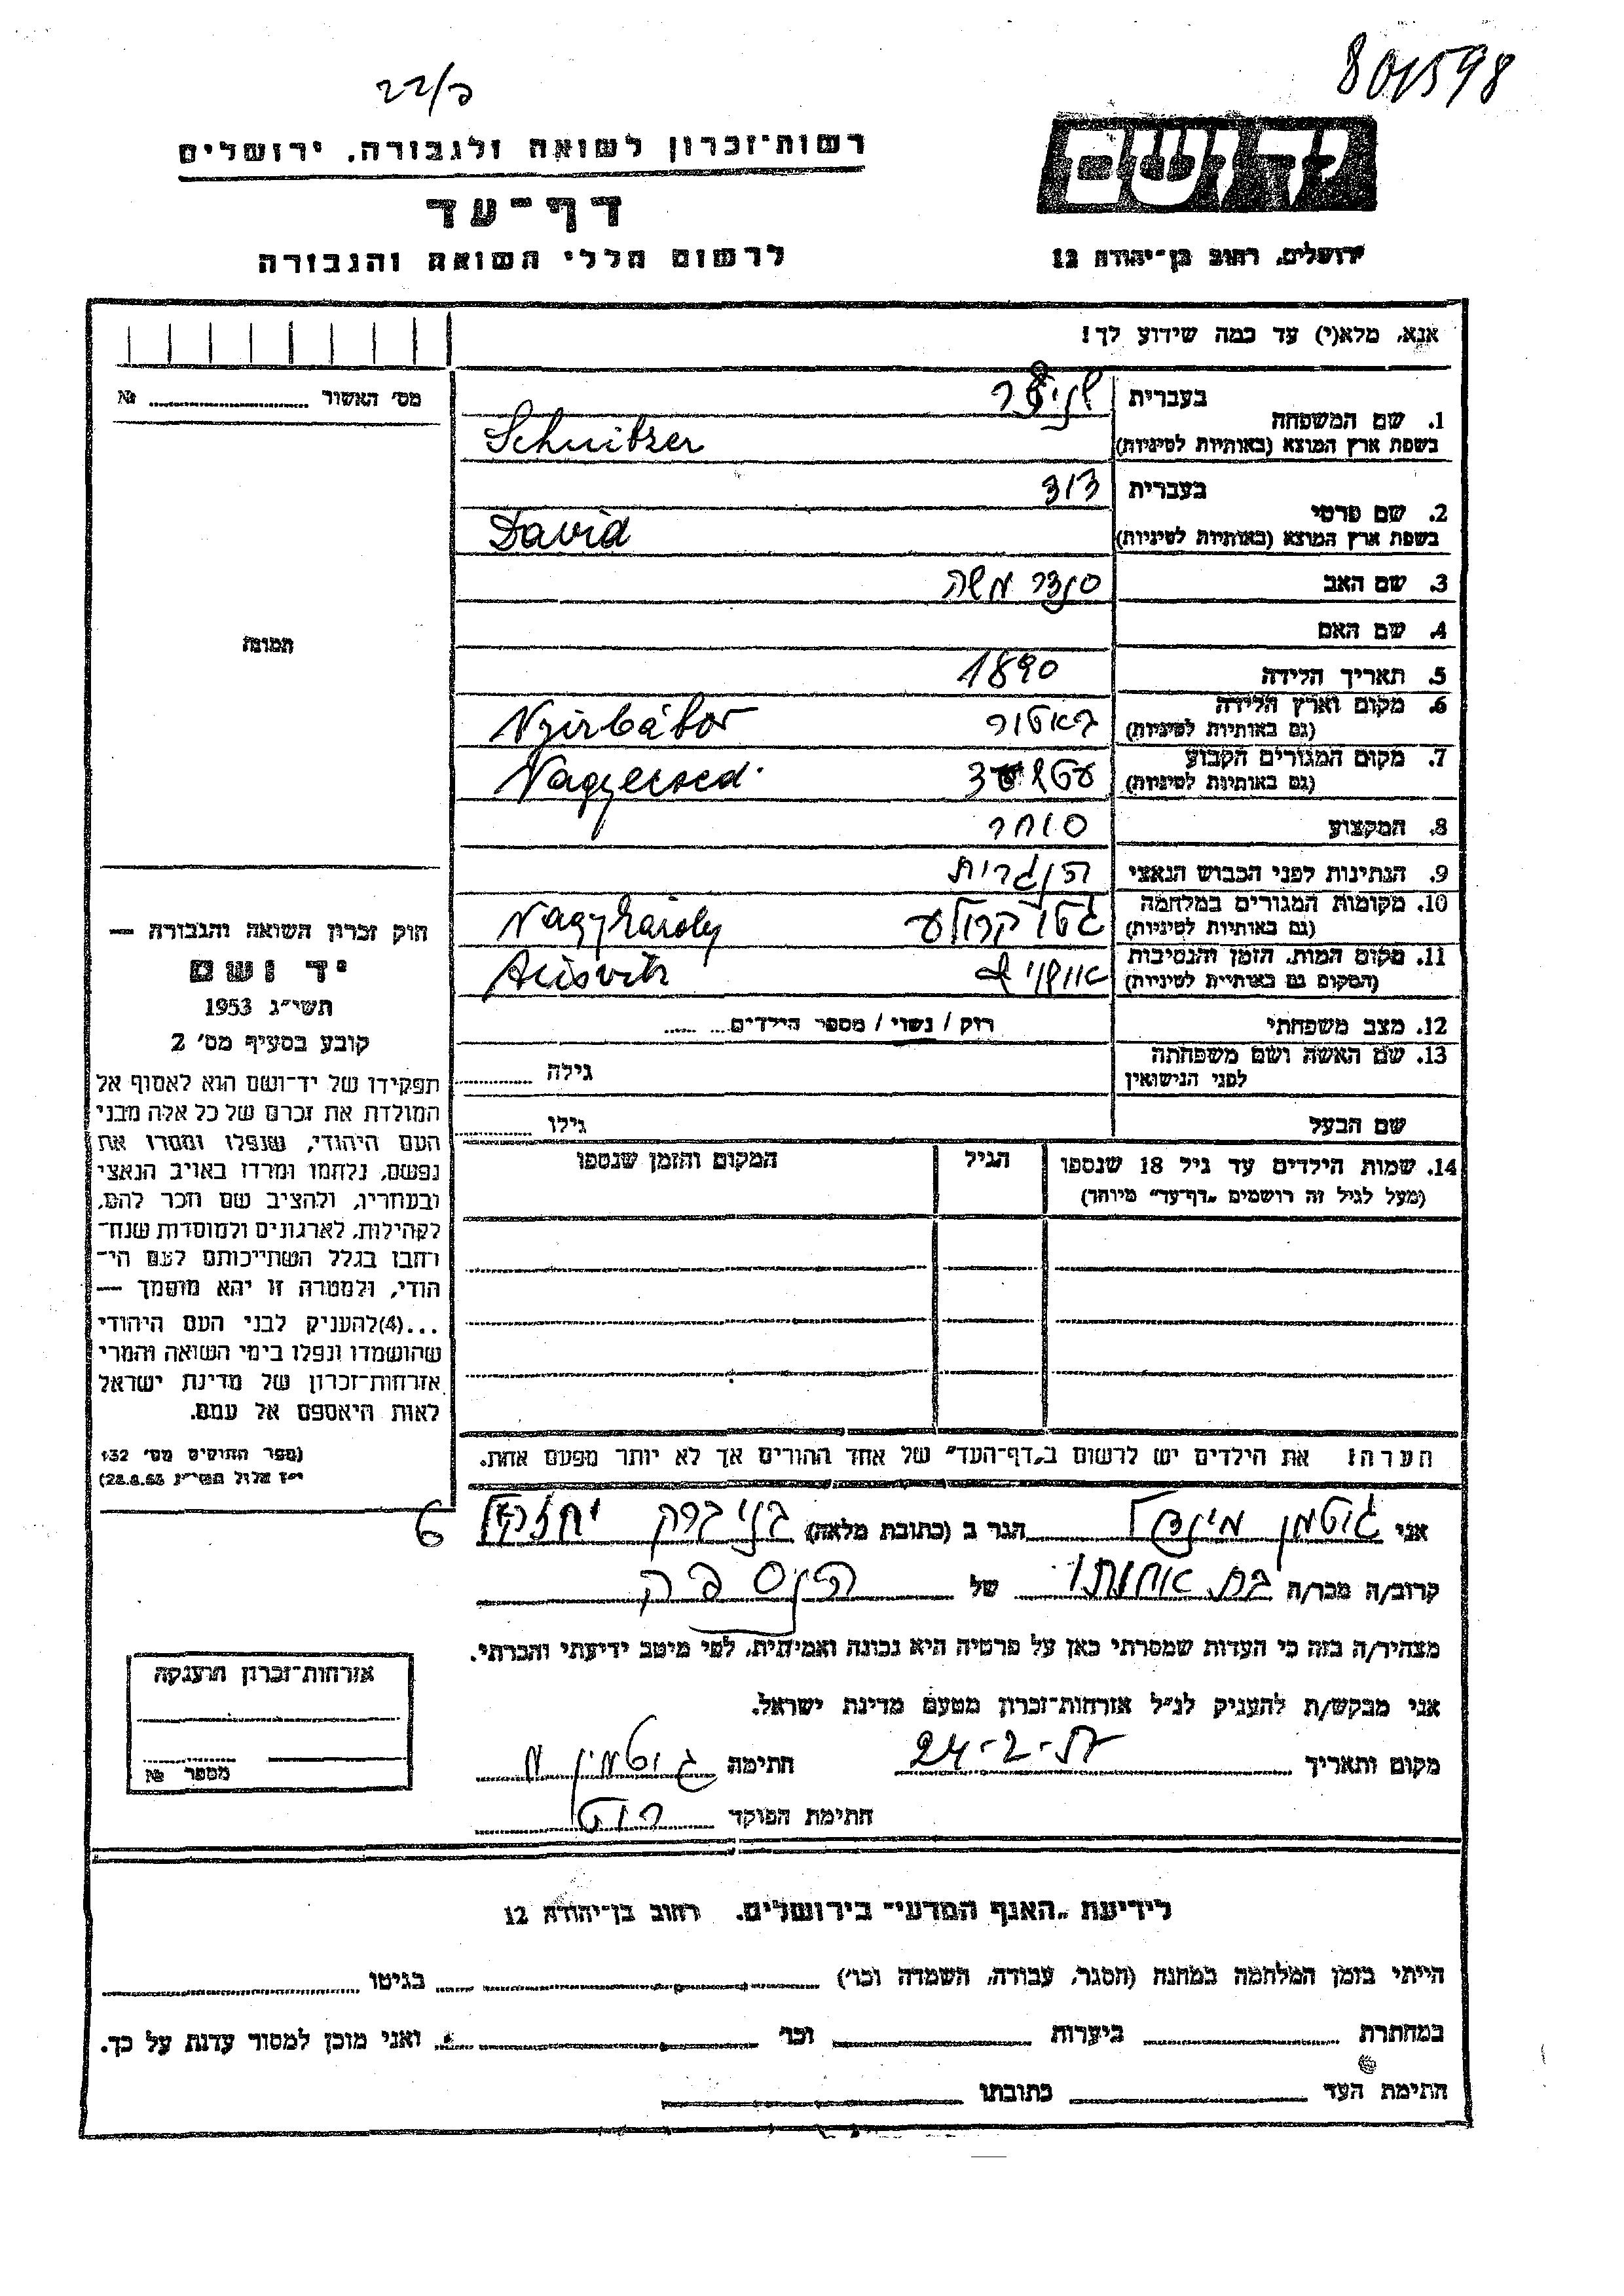 801598
22/כ
יד ושם
רשות־זכרון לשואה ולגבורה, ירושלים
דף־עד
לרשום חללי השואה והגבורה
ירושלים, רחוב בן־יהודה 12
אנא, מלא(י) עד כמה שידוע לך!
מס' האשור № 
בעברית שניצר
1. שם המשפחה
בשפת ארץ המוצא (באותיות לטיניות) Schnitzer
בעברית דוד
2. שם פרטי
בשפת ארץ המוצא (באותיות לטיניות) David
3. שם האב סנדר משה
4. שם האם
תמונה
5. תאריך הלידה 1890
6. מקום וארץ הלידה
(גם באותיות לטיניות) באטור Nyirbátor
7. מקום המגורים הקבוע
(גם באותיות לטיניות) Nagyecsed
8. המקצוע סוחר
9. הנתינות לפני הכבוש הנאצי הונגרית
10. מקומות המגורים במלחמה
(גם באותיות לטיניות) גטו קרולע Nagykároly
11. מקום המות, הזמן והנסיבות
(המקום גם באותיות לטיניות) אושויץ Ausvitz
12. מצב משפחתי רוק / נשוי / מספר הילדים
13. שם האשה ושם משפחתה
לפני הנישואין גילה
שם הבעל גילו
14. שמות הילדים עד גיל 18 שנספו
(מעל לגיל זה רושמים „דף־עד" מיוחד)
הגיל
המקום והזמן שנספו
הערה: את הילדים יש לרשום ב„דף־העד" של אחד ההורים אך לא יותר מפעם אחת.
חוק זכרון השואה והגבורה —
יד ושם
תשי"ג 1953
קובע בסעיף מס' 2
תפקידו של יד־ושם הוא לאסוף אל
המולדת את זכרם של כל אלה מבני
העם היהודי, שנפלו ומסרו את
נפשם, נלחמו ומרדו באויב הנאצי
ובעוזריו, ולהציב שם וזכר להם,
לקהילות, לארגונים ולמוסדות שנח־
רבו בגלל השתייכותם לעם הי־
הודי, ולמטרה זו יהא מוסמך —
...(4)להעניק לבני העם היהודי
שהושמדו ונפלו בימי השואה והמרי
אזרחות־זכרון של מדינת ישראל
לאות היאספם אל עמם.
(ספר החוקים מס' 132
י"ז אלול תשי"ג 28.8.53)
אני גוטמן מינדל הגר ב (כתובת מלאה) בני ברק יחזקאל 6
קרוב/ה מכר/ה בת אחותו של הניספה
מצהיר/ה בזה כי העדות שמסרתי כאן על פרטיה היא נכונה ואמיתית, לפי מיטב ידיעתי והכרתי.
אני מבקש/ת להעניק לנ"ל אזרחות־זכרון מטעם מדינת ישראל.
מקום ותאריך 24-2- חתימה גוטמן מ
חתימת הפוקד
אזרחות־זכרון הוענקה
מספר №
לידיעת „האגף המדעי" בירושלים, רחוב בן־יהודה 12
הייתי בזמן המלחמה במחנה (הסגר, עבודה, השמדה וכו') בגיטו
במחתרת ביערות וכו' ואני מוכן למסור עדות על כך.
חתימת העד כתובתו